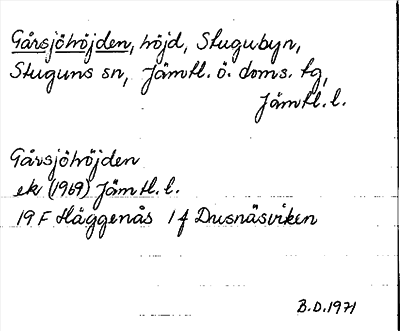 Gårsjöhöjden, höjd, Stugubyn,
Stuguns sn, Jämtl. ö. doms. tg,
Jämtl. l.
Gårsjöhöjden
ek (1969) Jämtl. l.
19 F Häggenås 1 f Dusnäsviken
B.D. 1971